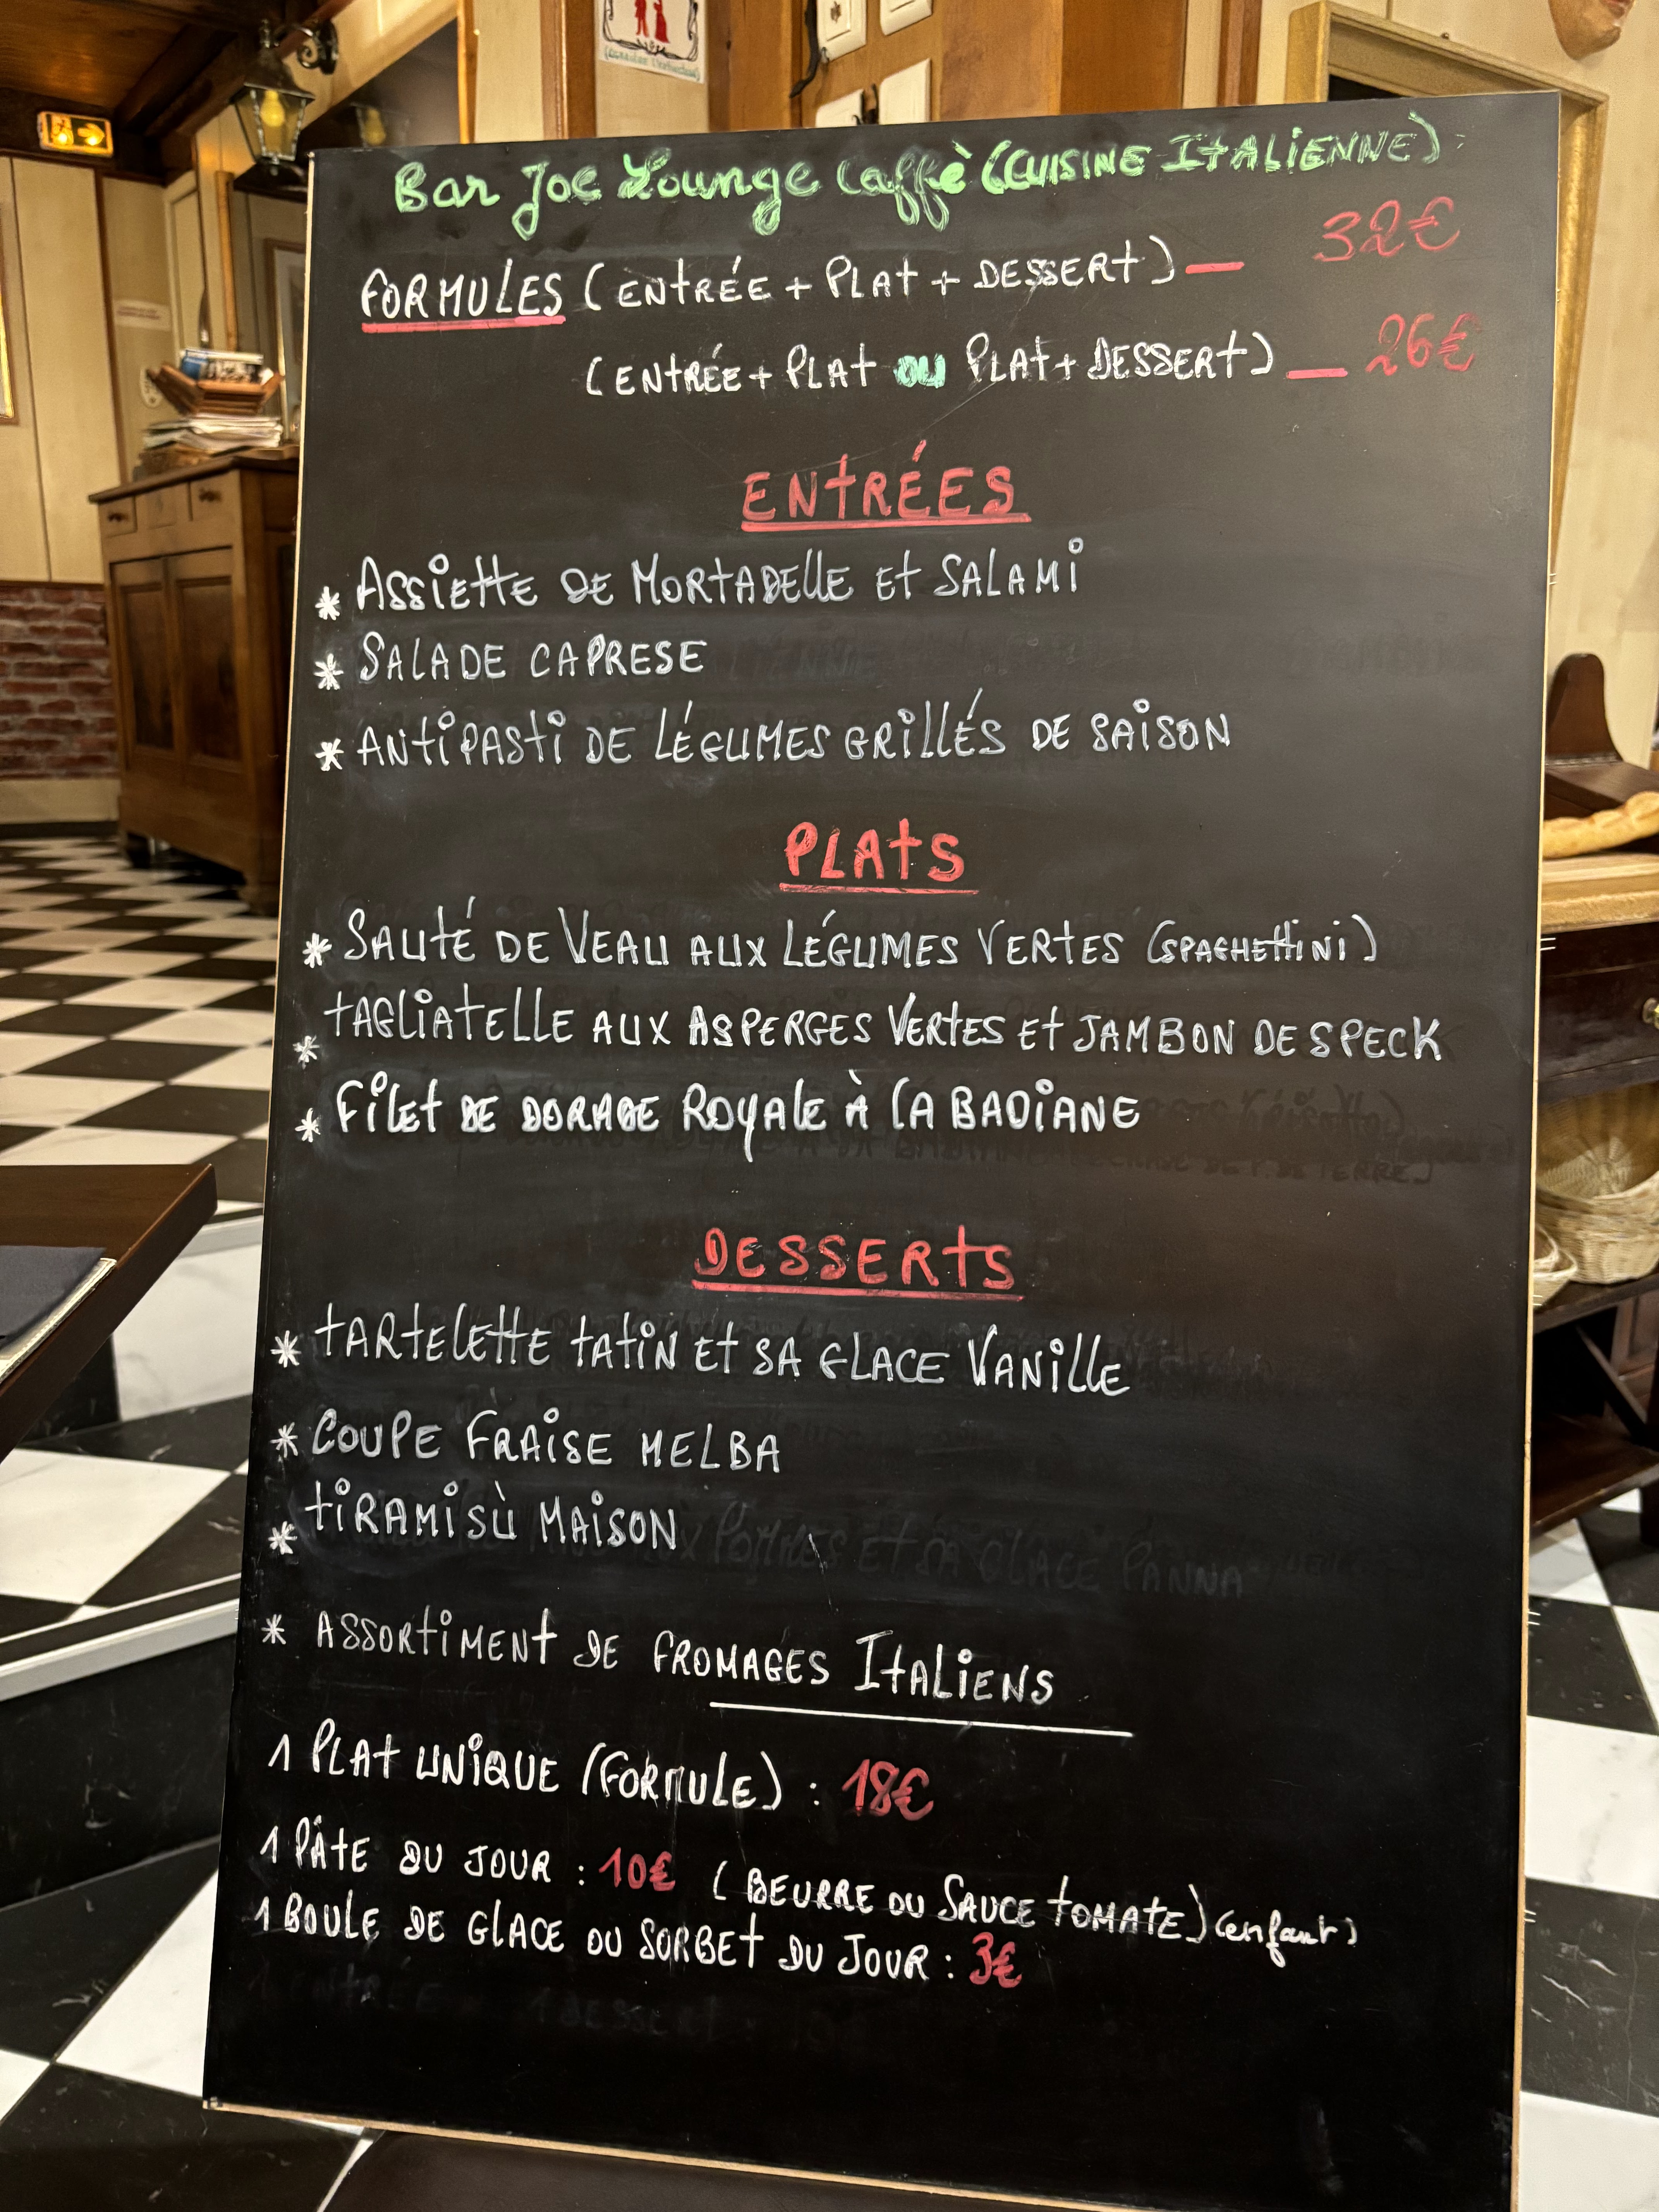 Bar Joe Lounge Caffè (CUISINE ITALIENNE)
FORMULES (ENTRÉE + PLAT + DESSERT) — 32€
(ENTRÉE + PLAT OU PLAT + DESSERT) — 26€
ENTRÉES
* ASSIETTE DE MORTADELLE ET SALAMI
* SALADE CAPRESE
* ANTIPASTI DE LÉGUMES GRILLÉS DE SAISON
PLATS
* SAUTÉ DE VEAU AUX LÉGUMES VERTES (SPAGHETTINI)
* TAGLIATELLE AUX ASPERGES VERTES ET JAMBON DE SPECK
* FILET DE DORADE ROYALE À LA BADIANE
DESSERTS
* TARTELETTE TATIN ET SA GLACE VANILLE
* COUPE FRAISE MELBA
* TIRAMISÙ MAISON
* ASSORTIMENT DE FROMAGES ITALIENS
1 PLAT UNIQUE (FORMULE) : 18€
1 PÂTE DU JOUR : 10€ (BEURRE OU SAUCE TOMATE) (enfant)
1 BOULE DE GLACE OU SORBET DU JOUR : 3€